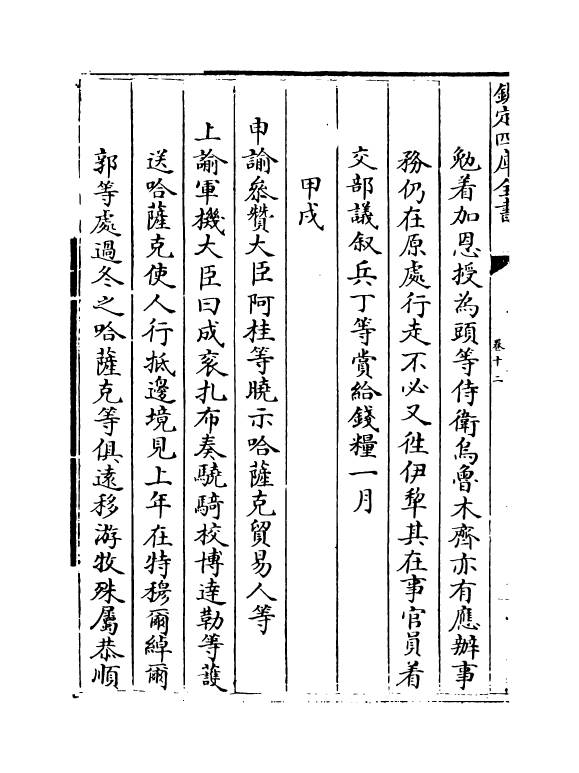 欽定四庫全書
卷十二
勉着加恩授為頭等侍衛烏魯木齊亦有應辦事
務仍在原處行走不必又徃伊犂其在事官員着
交部議叙兵丁等賞給錢糧一月
甲戌
申諭叅贊大臣阿桂等曉示哈薩克貿易人等
上諭軍機大臣曰成衮扎布奏驍騎校博達勒等護
送哈薩克使人行抵邊境見上年在特穆爾綽爾
郭等處過冬之哈薩克等俱遠移游牧殊屬恭順